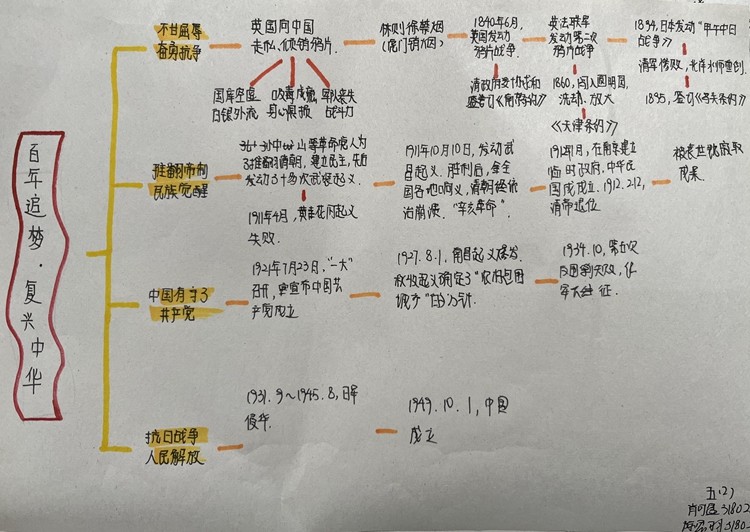 百年追梦·复兴中华
不甘屈辱
奋勇抗争
英国向中国
走私、倾销鸦片.
国库空虚
白银外流
吸毒成瘾
身心
军队丧失
战斗力
林则徐禁烟
(虎门销烟)
1840年6月,
英国发动
鸦片战争.
清政府
英法联军
发动第二次
鸦片战争
1860,闯入圆明园,
洗劫、放火
《天津条约》
1894,日本发动“甲午中日
战争》
清军惨败,北洋水师
1895,签订《马关条约》
推翻帝制
民族觉醒
孙中山等革命党人为
了推翻清朝,建立民主,先后
发动了十多次武装起义.
1911年4月,黄花岗起义
失败.
1911年10月10日,发动武
昌起义.胜利后,全
国各地响应,清朝统
治崩溃.“辛亥革命”.
在南京建立
临时政府,中华民
国成立.1912.2.12,
清帝退位
被袁世凯窃取
果.
中国有了
共产党
1921年7月23日,“一大”
召开,宣布中国共
产党成立
1927.8.1,南昌起义爆发.
秋收起义确定了“农村包围
城市”的方针.
1934.10,第五次
反围剿失败,红
军长征.
抗日战争
人民解放
1931.9~1945.8,日军
侵华.
1949.10.1,中国
成立
五(2)